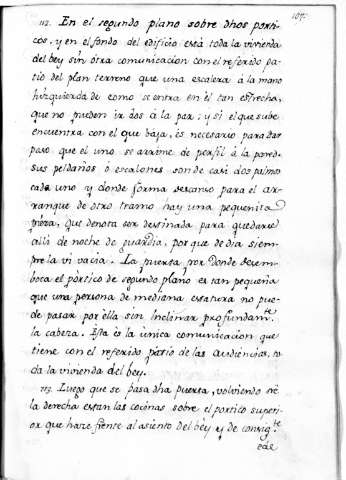 107.
112. En el segundo plano sobre dhos porti-
cos, y en el fondo del edificio està toda la vivienda
del bey sin otra comunicacion con el referido pa-
tio del plan terreno que una escalera à la mano
hizquierda de como se entra en èl tan estrecha,
que no pueden ir dos à la par; y si el que sube
encuentra con el que baja, es necesario para dar
paso que el uno se arrime de perfil à la pared.
sus peldaños ò escalones son de casi dos palmos
cada uno y donde forma descanso para el ar-
ranque de otro tramo hay una pequeñita
pieza, que denota ser destinada para quedarse
alli de noche de guardia, porque de dia siem-
pre la vi vacia. La puerta por donde desem-
boca el pòrtico de segundo plano es tan pequeña
que una persona de mediana estatura no pue-
de pasar por ella sin inclinar profundam.te
la cabeza. Esta es la ùnica comunicacion que
tiene con el referido patio de las audiencias, to-
da la vivienda del bey.
113. Luego que se pasa dha puerta, volviendo
la derecha estan las cocinas sobre el portico superi-
or que haze frente al asiento del bey y de consig.te